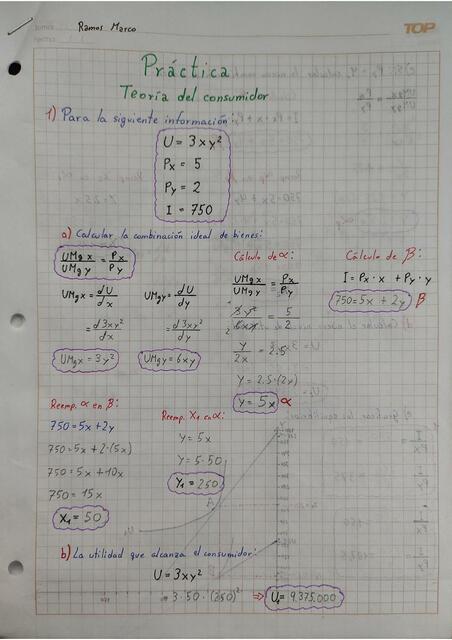 Ramos Marco
TOP
Práctica
Teoría del consumidor
1) Para la siguiente información:
U = 3xy²
Px = 5
Py = 2
I = 750
a) Calcular la combinación ideal de bienes:
UMgx/UMgy = Px/Py
UMgx = dU/dx
= d3xy²/dx
UMgx = 3y²
UMgy = dU/dy
= d3xy²/dy
UMgy = 6xy
Cálculo de α:
UMgx/UMgy = Px/Py
3y²/6xy = 5/2
y/2x = 2.5
y = 2.5·(2x)
y = 5x α
Cálculo de β:
I = Px·x + Py·y
750 = 5x + 2y β
Reemp. α en β:
750 = 5x + 2y
750 = 5x + 2·(5x)
750 = 5x + 10x
750 = 15x
X₁ = 50
Reemp. X₁ en α:
y = 5x
y = 5·50
Y₁ = 250
b) La utilidad que alcanza el consumidor:
U = 3xy²
= 3·50·(250)² ⇒ U₁ = 9.375.000